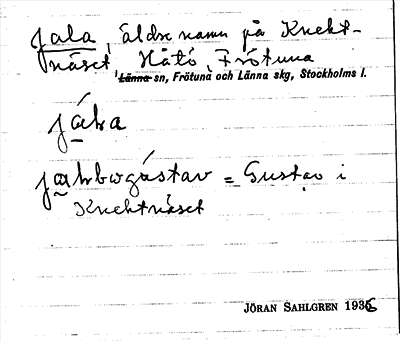 Jala, äldre namn på Knekt-
näset, Håtö, Frötuna
Länna sn, Frötuna och Länna skg, Stockholms l.
jála
jalbogástav = Gustav i
Knektnäset
JÖRAN SAHLGREN 1936